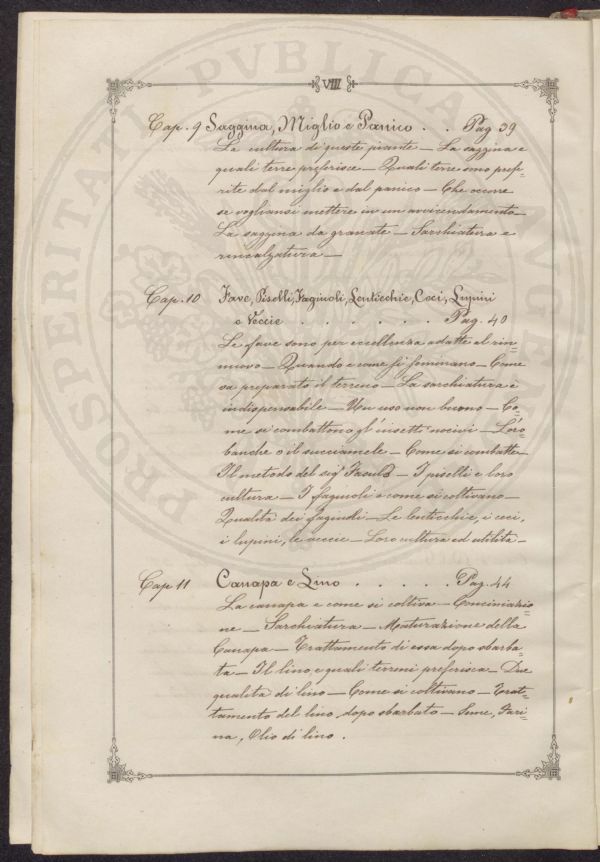 VIII
Cap. 9 Saggina, Miglio e Panico . . Pag 39
La cultura di queste piante — La saggina e
quali terre preferisce — Quali terre sono prefe=
rite dal miglio e dal panico — Che occorre
se vogliansi mettere in un avvicendamento —
La saggina da granate — Sarchiatura e
rincalzatura —
Cap. 10 Fave, Piselli, Fagiuoli, Lenticchie, Ceci, Lupini
e Veccie . . . . . . . Pag. 40
Le fave sono per eccellenza adatte al rin=
nuovo — Quando e come si seminano — Come
va preparato il terreno — La sarchiatura è
indispensabile — Un uso non buono — Co=
me si combattono gl'insetti nocivi — L'oro=
banche o il succiamele — Come si combatte —
Il metodo del sig.
I piselli e loro
cultura — I fagiuoli e come si coltivano —
Qualità dei fagiuoli — Le lenticchie, i ceci,
i lupini, le veccie — Loro cultura ed utilità —
Cap 11 Canapa e Lino . . . . . Pag. 44
La canapa e come si coltiva — Conciniazio=
ne — Sarchiatura — Maturazione della
Canapa — Trattamento di essa dopo sbarba=
ta — Il lino, e quali terreni preferisca — Due
qualità di lino — Come si coltivano — Trat=
tamento del lino dopo sbarbato — Seme, Fari=
na, Olio di lino .
PROSPERITATI PVBLICAE AVGENDAE